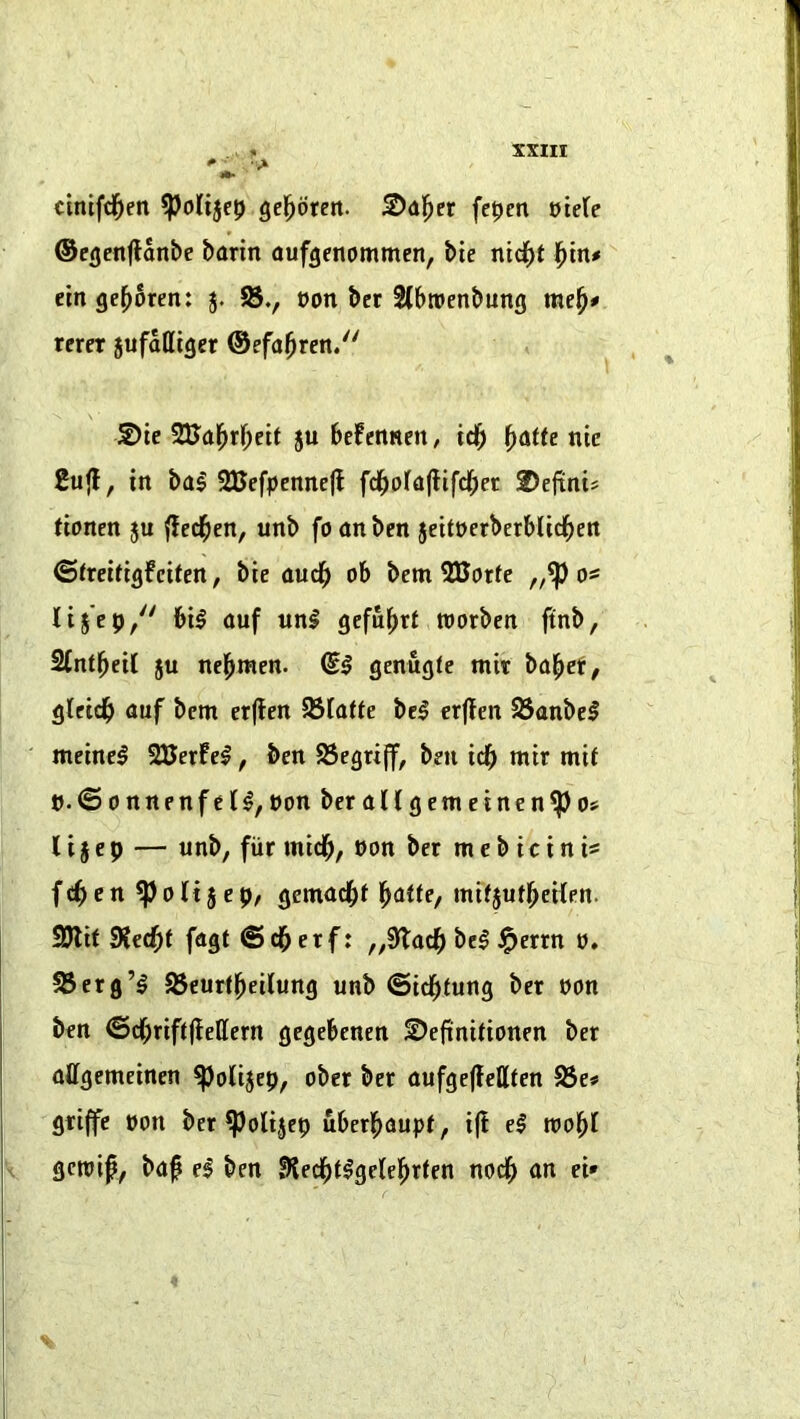 XXIII
cinischen Polizey gehören. Daher seyen viele
Gegenstände darin aufgenommen, die nicht hin-
ein gehören: z. B., von der Abwendung meh-
rerer zufälliger Gefahren."
Die Wahrheit zu bekennen, ich hatte nie
Lust, in das Wespennest scholastischer Defini-
tionen zu stechen, und so an den zeitverderblichen
Streitigkeiten, die auch ob dem Worte „Po-
lizey," bis auf uns geführt worden sind,
Antheil zu nehmen. Es genügte mir daher,
gleich auf dem ersten Blatte des ersten Bandes
meines Werkes, den Begriff, den ich mir mit
v. Sonnenfels, von der allgemeinen Po-
lizey — und, für mich, von der medicini-
schen Polizey, gemacht hatte, mitzutheilen.
Mit Recht sagt Scherf: „Nach des Herrn v.
Berg's Beurtheilung und Sichtung der von
den Schriftstellern gegebenen Definitionen der
allgemeinen Polizey, oder der aufgestellten Be-
griffe von der Polizey überhaupt, ist es wohl
gewiß, daß es den Rechtsgelehrten noch an ei-